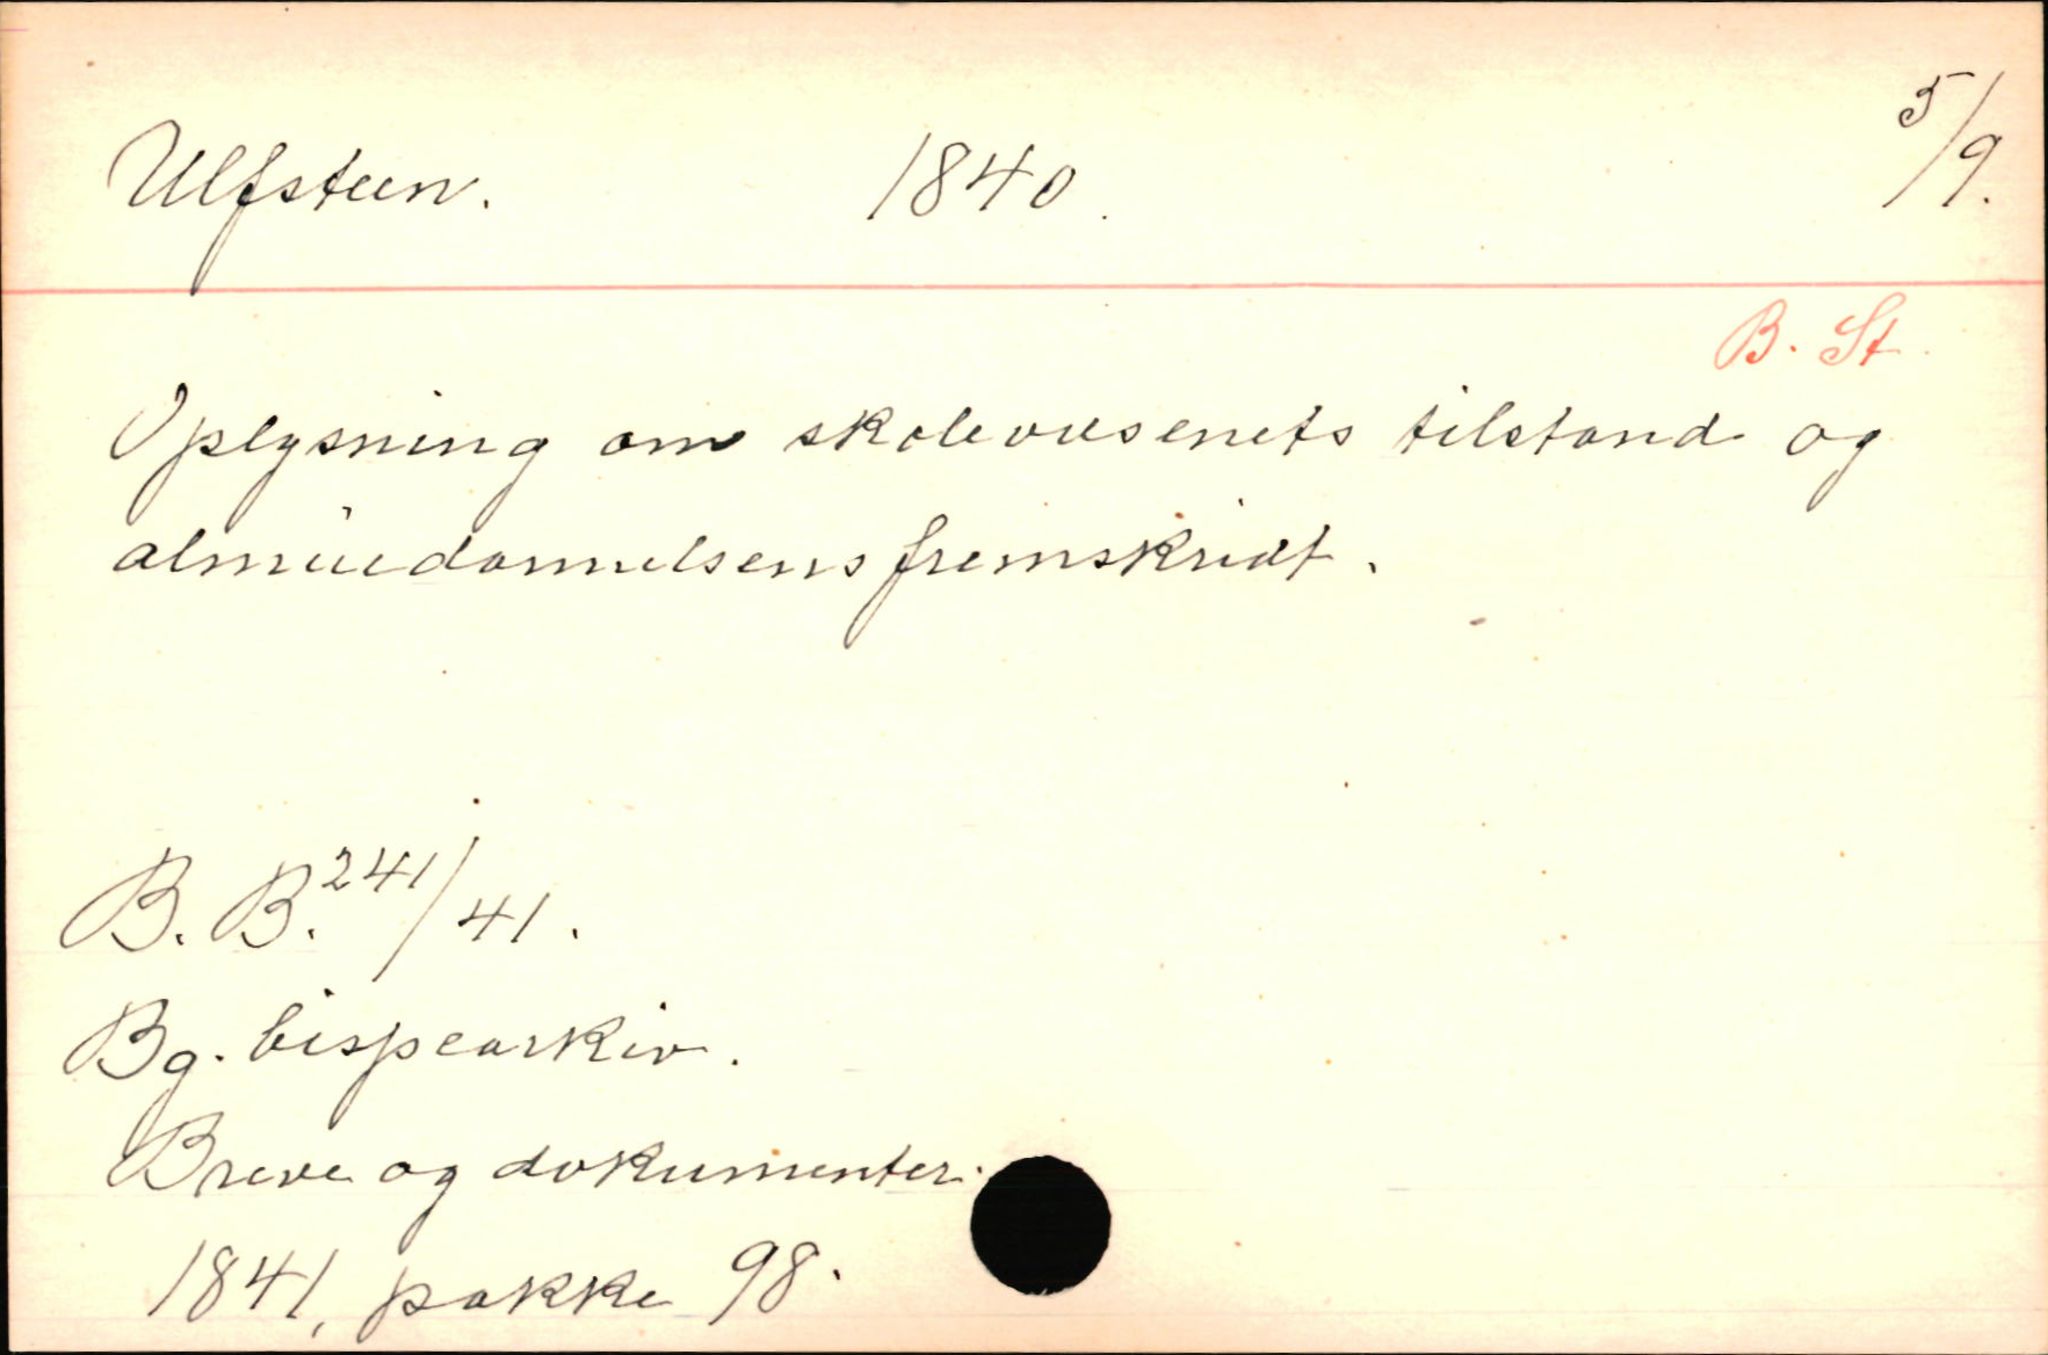 Ulfsteen. 1840. 5/9.
B. St.
Oplysning om skolevæsenets tilstand og
almuedannelsens fremskridt.
B. B. 241/41.
Bg. bispearkiv.
Breve og dokumenter.
1841, pakke 98.